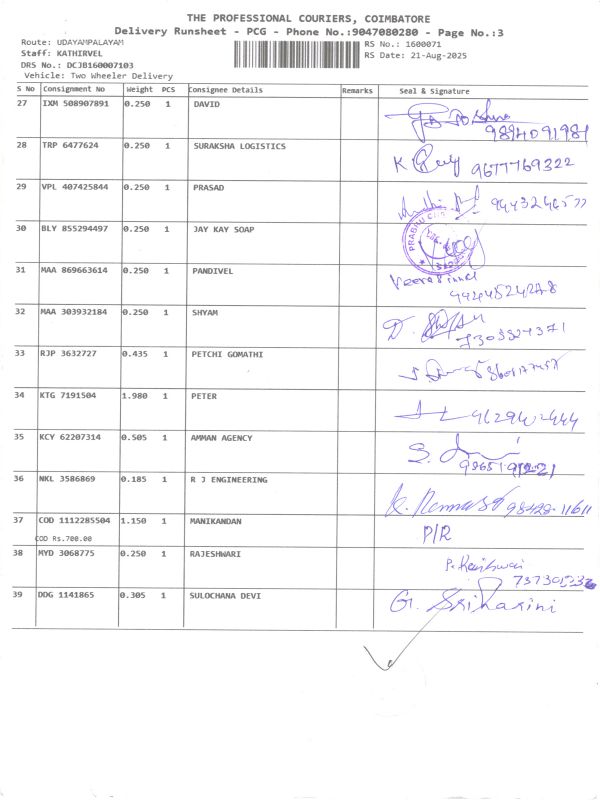 THE PROFESSIONAL COURIERS, COIMBATORE
Delivery Runsheet - PCG - Phone No.:9047080280 - Page No.:3
Route: UDAYAMPALAYAM
RS No.: 1600071
Staff: KATHIRVEL
RS Date: 21-Aug-2025
DRS No.: DCJB160007103
Vehicle: Two Wheeler Delivery
S No Consignment No Weight PCS Consignee Details Remarks Seal & Signature
27 IXM 508907891 0.250 1 DAVID
9894091981
28 TRP 6477624 0.250 1 SURAKSHA LOGISTICS
K 9677769322
29 VPL 407425844 0.250 1 PRASAD
30 BLY 855294497 0.250 1 JAY KAY SOAP
31 MAA 869663614 0.250 1 PANDIVEL
32 MAA 303932184 0.250 1 SHYAM
D.
33 RJP 3632727 0.435 1 PETCHI GOMATHI
34 KTG 7191504 1.980 1 PETER
35 KCY 62207314 0.505 1 AMMAN AGENCY
S.
36 NKL 3586869 0.185 1 R J ENGINEERING
37 COD 1112285504 1.150 1 MANIKANDAN P/R
COD Rs.700.00
38 MYD 3068775 0.250 1 RAJESHWARI
39 DDG 1141865 0.305 1 SULOCHANA DEVI G. Sriharini